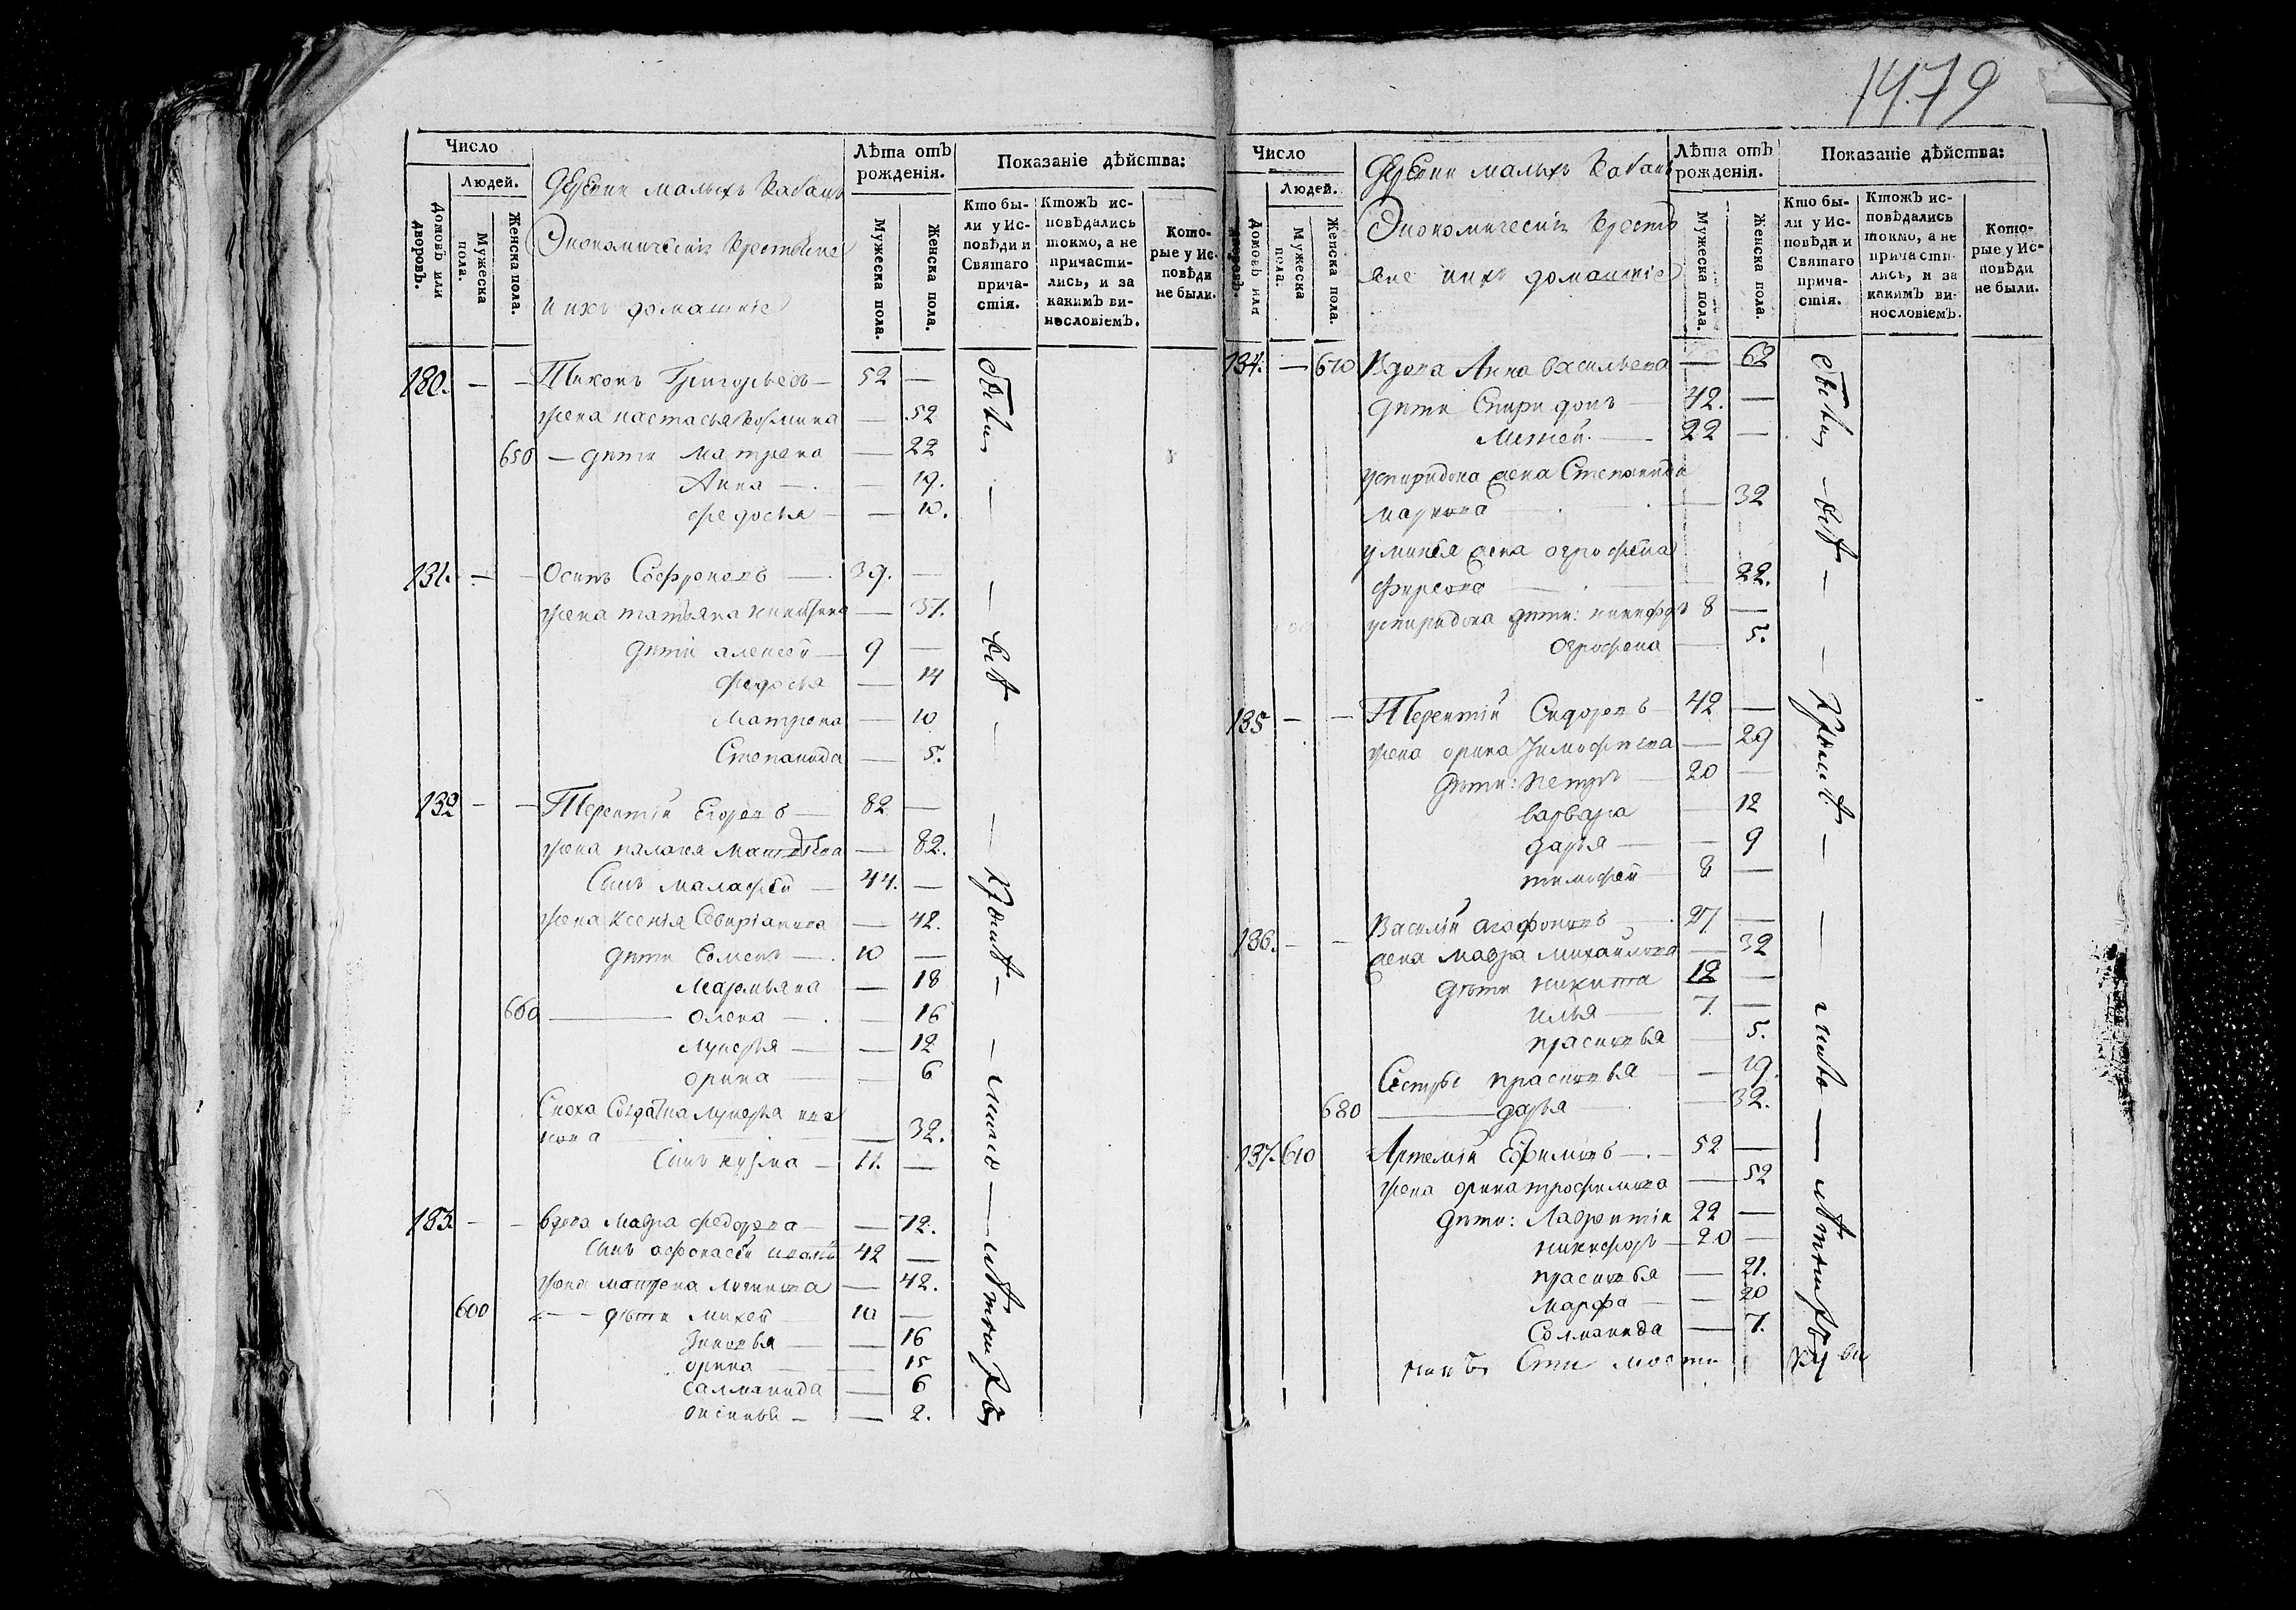 1479
Число
Людей.
Домовъ или дворовъ.
Мужеска пола.
Женска пола.
Деревни малыхъ Кабанъ
Экономическия крестьяне
и ихъ домашние
Лѣта отъ рожденія.
Мужеска пола.
Женска пола.
Показаніе дѣйства:
Кто бы-
ли у Ис-
повѣди и
Святаго
прича-
стія.
Ктожъ ис-
повѣдались
токмо, а не
причасти-
лись, и за
какимъ ви-
нословіемъ.
Кото-
рые у Ис-
повѣди
не были.
130. — — Тихонъ Григорьевъ — 52 —
жена настасья козмина — 52
650 — дѣти матрена — 22
Анна — 19.
федосья — 10.
131. — — Осипъ Софроновъ — 39. —
жена татьяна никитина — 37.
дѣти алексѣй — 9 —
федосья — 14
Матрена — 10
Степанида — 5.
132 — — Терентій Егоровъ — 82 —
жена палагея Матвѣева — 82.
Сынъ малафѣй — 44. —
жена Ксенія Севиріанова — 42.
дѣти Семенъ — 10 —
Маремьяна — 18
660 — олена — 16
лукерья — 12
орина — 6
Сноха Солдатка лукерья ива
нова — 32.
Сынъ кузма — 11. —
133. — — вдова Мавра федорова — 72.
Сынъ афонасѣй 42 —
жена матрена логинова — 42.
600 — дѣти михей 10 —
Зиновья — 16
орина — 15
саламанида — 6
аксинья — 2.
Число
Людей.
Домовъ или дворовъ.
Мужеска пола.
Женска пола.
Деревни малыхъ Кабанъ
Экономическия кресть
яне и ихъ домашніе
Лѣта отъ рожденія.
Мужеска пола.
Женска пола.
Показаніе дѣйства:
Кто бы-
ли у Ис-
повѣди и
Святаго
прича-
стія.
Ктожъ ис-
повѣдались
токмо, а не
причасти-
лись, и за
какимъ ви-
нословіемъ.
Кото-
рые у Ис-
повѣди
не были.
134. — 670 Вдова Анна васильева — 62
дѣти Спиридонъ — 42. —
Михей — 22 —
успиридона жена Степанида
маркова — 32
умихея жена огрофена
фирсова — 22.
успиридона дѣти: никифоръ 8 —
огрофена — 5.
135 — — Терентій Сидоровъ 42 —
жена орина Тимофѣева — 29
дѣти: петръ — 20 —
варвара — 12
дарья — 9
тимофей 8 —
136. — — Василій агафоновъ — 27 —
жена мавра михайлова — 32
дѣти никита 12 —
илья — 7. —
прасковья — 5.
Сестры прасковья — 19.
680 — дарья — 32.
137. 610 Артемій Ефимовъ — 52 —
жена орина трофимова — 52
дѣти: Лаврентій 22 —
никифоръ — 20 —
прасковья — 21.
Марфа — 20
Соломанида — 7.